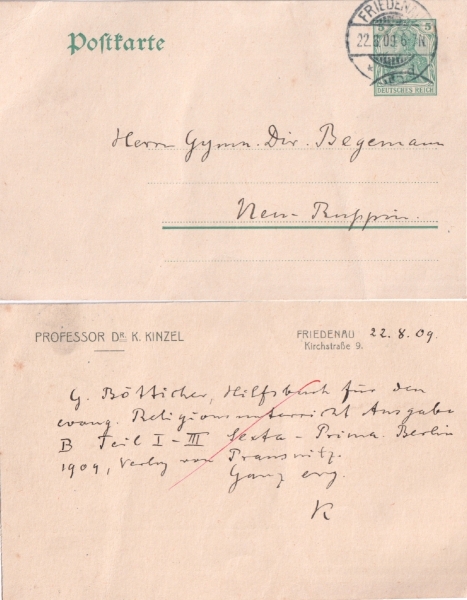 Postkarte
FRIEDENAU
22.8.09.6-7N
5 5
DEUTSCHES REICH
Herrn Gymn. Dir. Begemann
Neu-Ruppin.
PROFESSOR DR. K. KINZEL
FRIEDENAU 22.8.09.
Kirchstraße 9.
G. Bötticher, Hilfsbuch für den
evang. Religionsunterricht Ausgabe
B Teil I-III Sexta-Prima. Berlin
1909, Verlag von
Ganz erg.
K